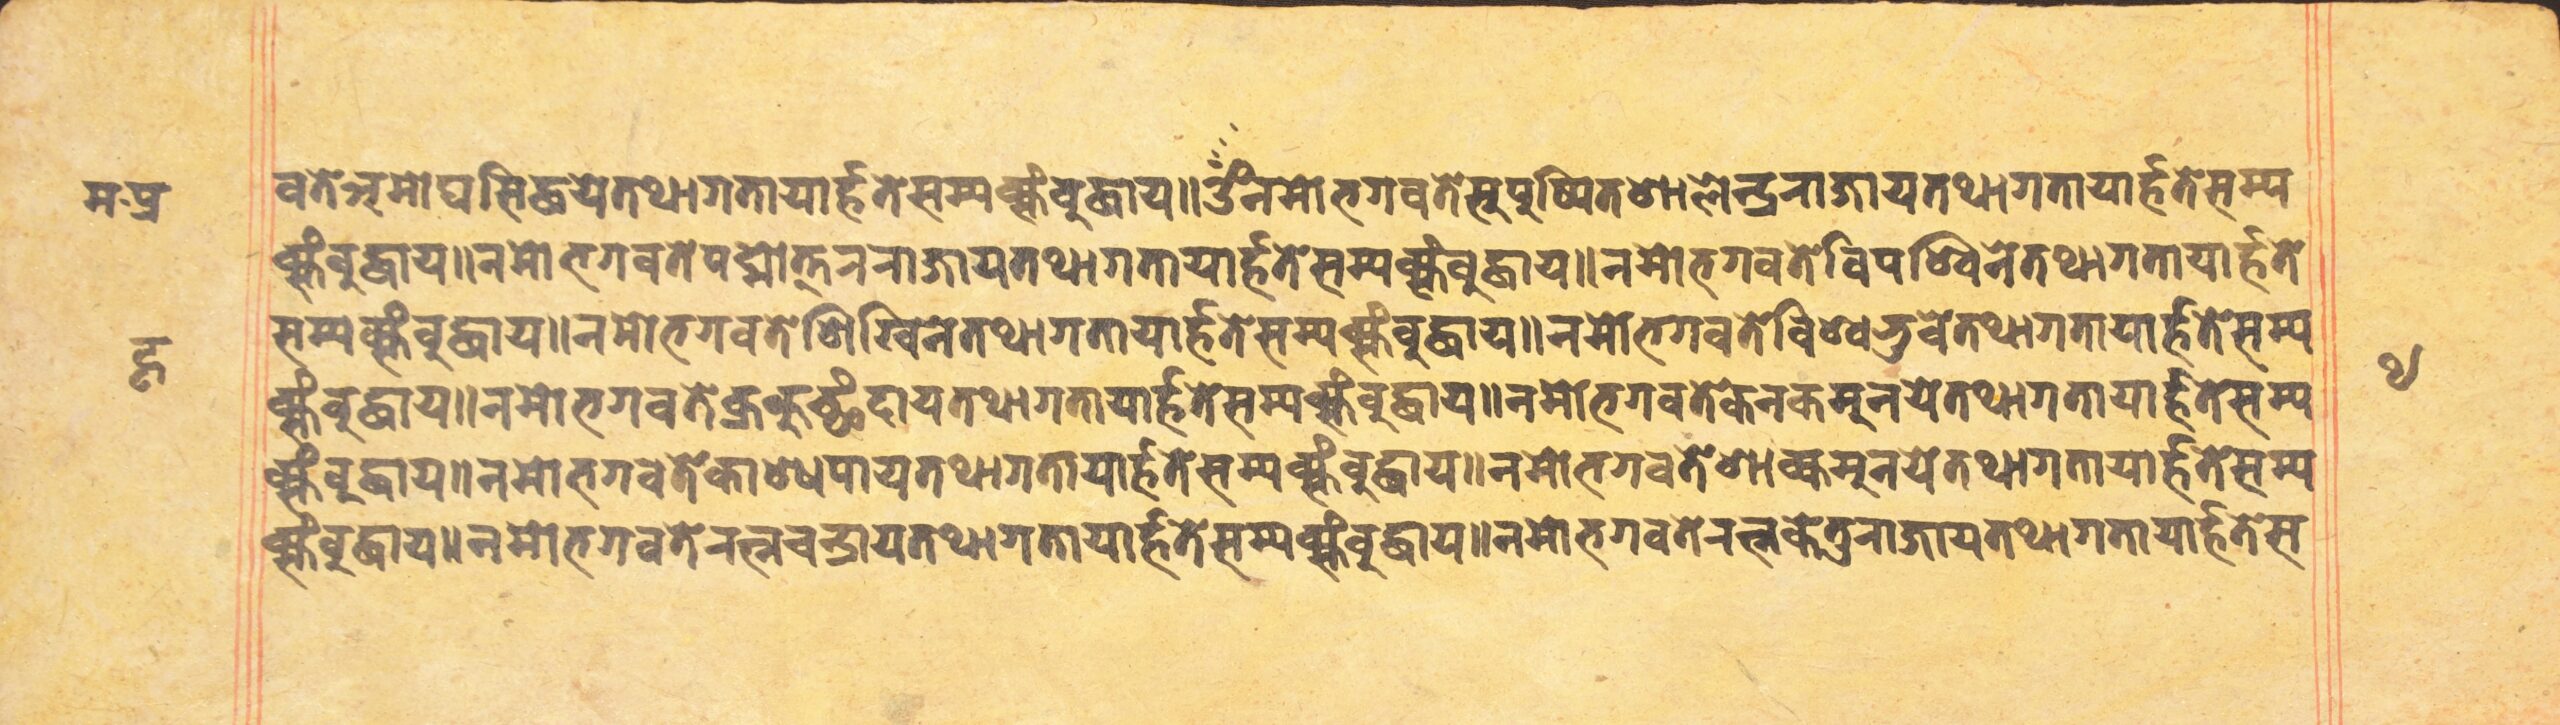 म·प्र
वतेऽमोघसिद्धयेतथागतायार्हतेसम्यक्संबुद्धाय॥ॐनमोभगवतेसुपुष्पितशालेन्द्रराजायतथागतायार्हतेसम्य
क्संबुद्धाय॥नमोभगवतेपद्मोत्तरराजायतथागतायार्हतेसम्यक्संबुद्धाय॥नमोभगवतेविपश्विनेतथागतायार्हते
सम्यक्संबुद्धाय॥नमोभगवतेशिखिनेतथागतायार्हतेसम्यक्संबुद्धाय॥नमोभगवतेविश्वभुवेतथागतायार्हतेसम्य
क्संबुद्धाय॥नमोभगवतेक्रकुच्छंदायतथागतायार्हतेसम्यक्संबुद्धाय॥नमोभगवतेकेनकमुनयेतथागतायार्हतेसम्य
क्संबुद्धाय॥नमोभगवतेकाश्यपायतथागतायार्हतेसम्यक्संबुद्धाय॥नमोभगवतेशाक्यमुनयेतथागतायार्हतेसम्य
क्संबुद्धाय॥नमोभगवतेरत्नचन्द्रायतथागतायार्हतेसम्यक्संबुद्धाय॥नमोभगवतेरत्नकेतुराजायतथागतायार्हतेस